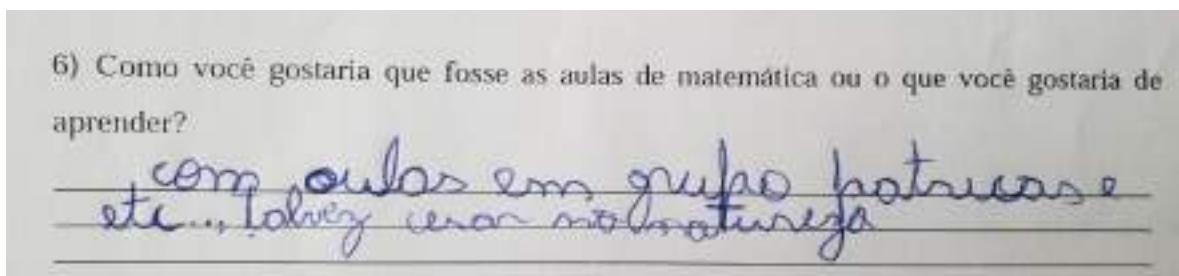 6) Como você gostaria que fosse as aulas de matemática ou o que você gostaria de
aprender?
com aulas em grupo patricas e
etc... Talvez na natureza